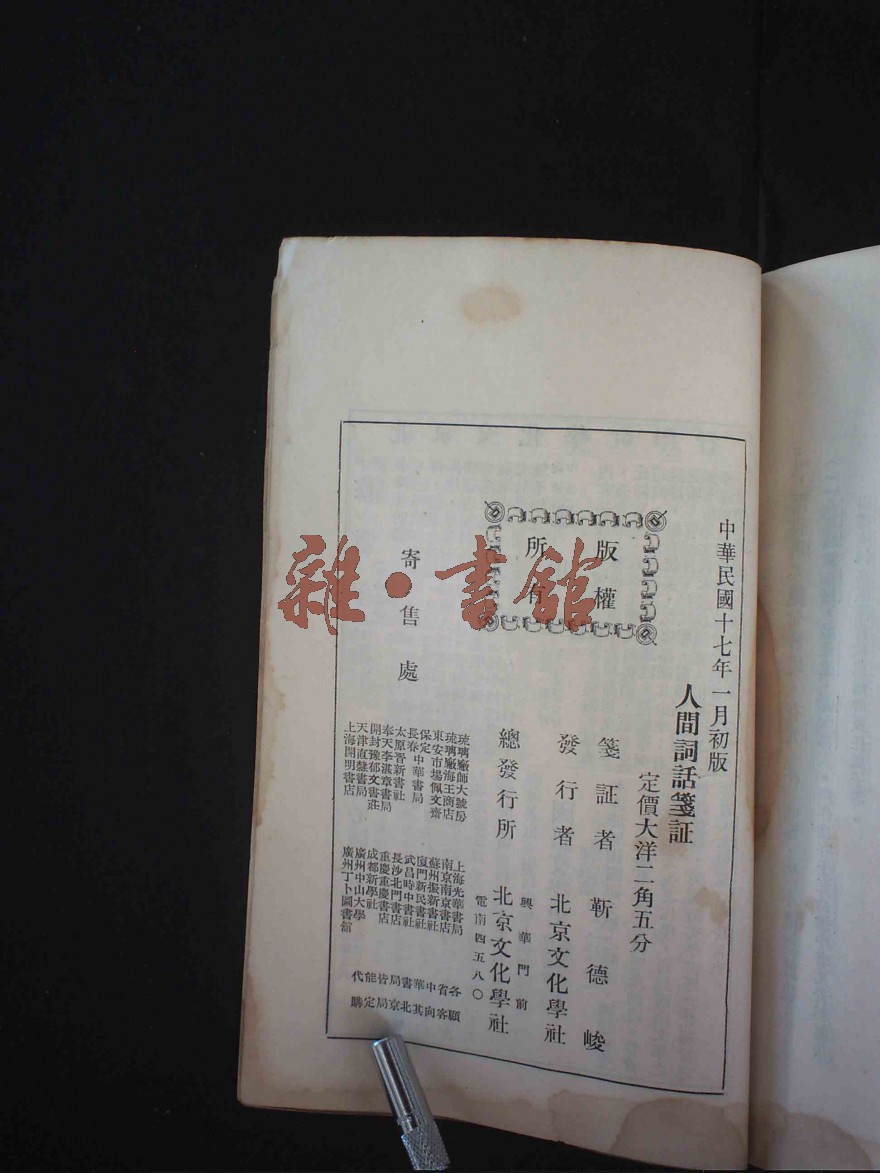 中華民國十七年一月初版
人間詞話箋証
定價大洋二角五分
版權
所有
箋証者 靳德峻
發行者 北京文化學社
總發行所 北京文化學社
興華門前
電南四五八〇
寄售處
琉璃廠師大號房
琉璃廠海王商店
東安市場佩文齋
保定
長春中華書局
太原晋新書社
奉天李湛章書局
開封豫郁文書莊
天津直隸書局
上海開明書店
上海光華書局
南京南京書店
蘇州振新書社
廈門新民書社
武昌時中書社
長沙北門書店
重慶重慶書店
成都新學社
廣州中山大學
廣州丁卜圖書館
各省中華書局皆能代
顧客向其北京局定購
雜·書館